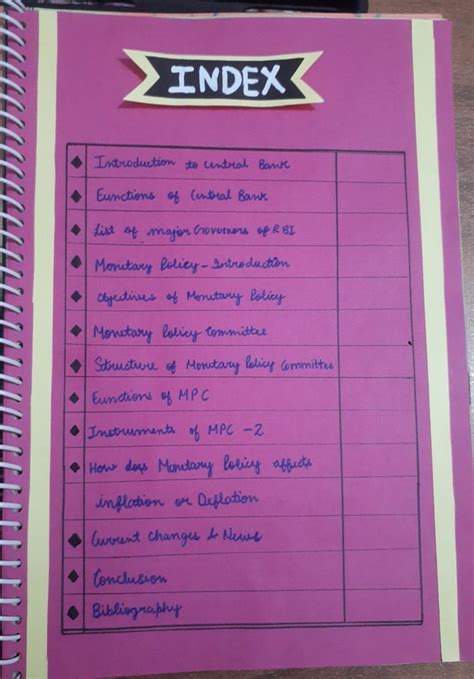 INDEX
Introduction to Central Bank
Functions of Central Bank
List of major Governors of RBI
Monetary Policy - Introduction
Objectives of Monetary Policy
Monetary Policy Committee
Structure of Monetary Policy Committee
Functions of MPC
Instruments of MPC - 2
How does Monetary Policy affects
inflation or Deflation
Current Changes & News
Conclusion
Bibliography